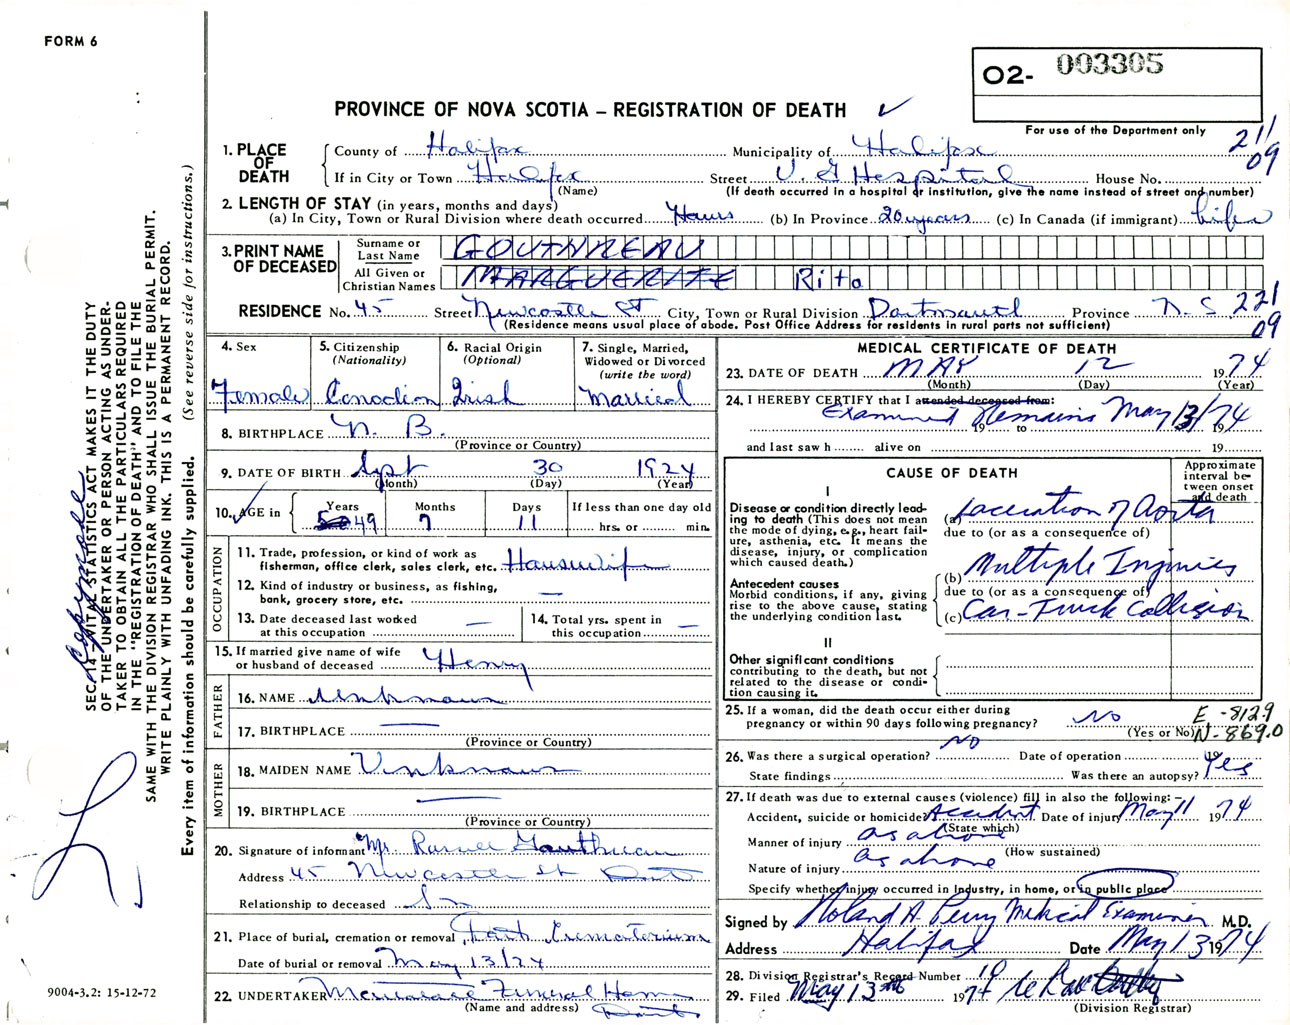 FORM 6
O2- 003305
PROVINCE OF NOVA SCOTIA – REGISTRATION OF DEATH ✓
For use of the Department only
211
09
1. PLACE OF DEATH
County of Halifax Municipality of Halifax
If in City or Town Halifax Street V. G Hospital House No.
(Name) (If death occurred in a hospital or institution, give the name instead of street and number)
2. LENGTH OF STAY (in years, months and days)
(a) In City, Town or Rural Division where death occurred Hours (b) In Province 20 years (c) In Canada (if immigrant) Life
3. PRINT NAME OF DECEASED
Surname or Last Name GOUTHREAU
All Given or Christian Names MARGUERITE Rita
RESIDENCE No. 45 Street Newcastle St City, Town or Rural Division Dartmouth Province N. S. 221
09
(Residence means usual place of abode. Post Office Address for residents in rural parts not sufficient)
4. Sex
Female
5. Citizenship
(Nationality)
Canadian
6. Racial Origin
(Optional)
Irish
7. Single, Married, Widowed or Divorced
(write the word)
Married
8. BIRTHPLACE N. B.
(Province or Country)
9. DATE OF BIRTH Sept 30 1924
(Month) (Day) (Year)
10. AGE in ✓
Years 49
Months 7
Days 11
If less than one day old
hrs. or min.
OCCUPATION
11. Trade, profession, or kind of work as fisherman, office clerk, sales clerk, etc. Housewife
12. Kind of industry or business, as fishing, bank, grocery store, etc. —
13. Date deceased last worked at this occupation —
14. Total yrs. spent in this occupation —
15. If married give name of wife or husband of deceased Henry
FATHER
16. NAME Unknown
17. BIRTHPLACE —
(Province or Country)
MOTHER
18. MAIDEN NAME Unknown
19. BIRTHPLACE —
(Province or Country)
20. Signature of informant Mr.
Address 45 Newcastle St Dart
Relationship to deceased Son
21. Place of burial, cremation or removal Dart Crematorium
Date of burial or removal May 13/74
22. UNDERTAKER Funeral Home
(Name and address) Dart
MEDICAL CERTIFICATE OF DEATH
23. DATE OF DEATH MAY 12 1974
(Month) (Day) (Year)
24. I HEREBY CERTIFY that I attended deceased from:
Examined Remains May 13/74
19 to 19
and last saw h alive on 19
CAUSE OF DEATH
Approximate interval between onset and death
I
Disease or condition directly leading to death (This does not mean the mode of dying, e.g., heart failure, asthenia, etc. It means the disease, injury, or complication which caused death.)
(a) Laceration of Aorta
due to (or as a consequence of)
Antecedent causes
Morbid conditions, if any, giving rise to the above cause, stating the underlying condition last.
(b) Multiple Injuries
due to (or as a consequence of)
(c) Car-Truck Collision
II
Other significant conditions contributing to the death, but not related to the disease or condition causing it.
25. If a woman, did the death occur either during pregnancy or within 90 days following pregnancy? No
(Yes or No)
E-8129
N-869.0
26. Was there a surgical operation? No Date of operation 19
State findings Was there an autopsy? Yes
27. If death was due to external causes (violence) fill in also the following: –
Accident, suicide or homicide Accident Date of injury May 11 1974
(State which)
Manner of injury as above
(How sustained)
Nature of injury as above
Specify whether injury occurred in industry, in home, or in public place
Signed by Roland A. Perry Medical Examiner M.D.
Address Halifax Date May 13 1974
28. Division Registrar's Record Number 10
29. Filed May 13th 1974
(Division Registrar)
SEC. 14 – VITAL STATISTICS ACT MAKES IT THE DUTY
OF THE UNDERTAKER OR PERSON ACTING AS UNDER-
TAKER TO OBTAIN ALL THE PARTICULARS REQUIRED
IN THE "REGISTRATION OF DEATH" AND TO FILE THE
SAME WITH THE DIVISION REGISTRAR WHO SHALL ISSUE THE BURIAL PERMIT.
WRITE PLAINLY WITH UNFADING INK. THIS IS A PERMANENT RECORD.
Every item of information should be carefully supplied. (See reverse side for instructions.)
9004-3.2: 15-12-72